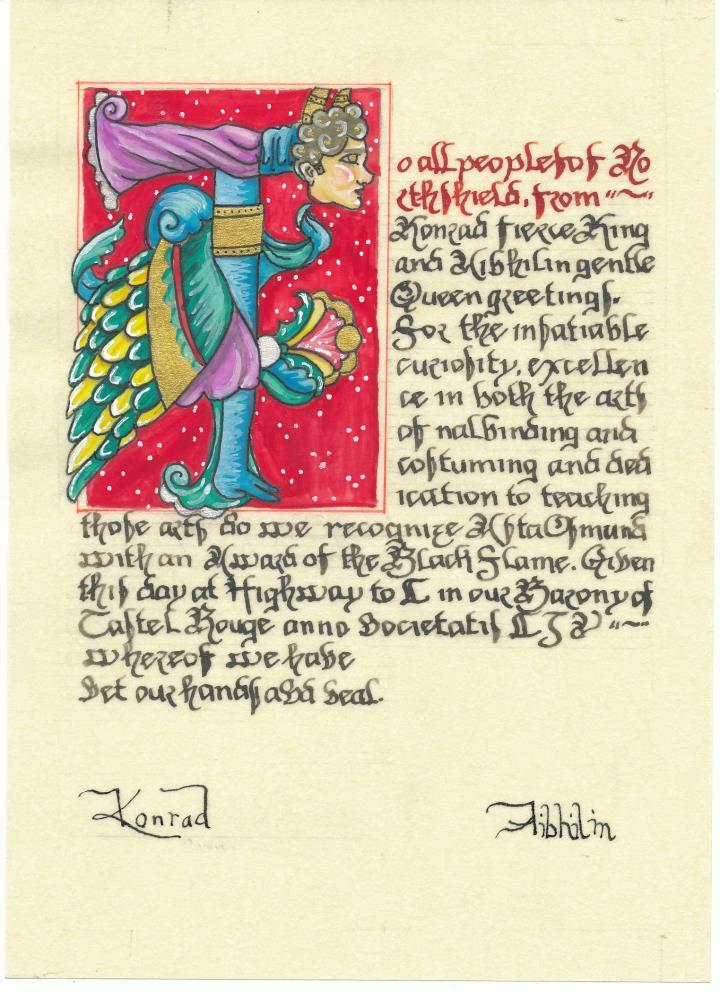 To all peoples of No
rthshield, from ~
Konrad fierce King
and Aibhilin gentle
Queen greetings.
For the insatiable
curiosity, excellen
ce in both the arts
of nalbinding and
costuming and ded
ication to teaching
those arts do we recognize Asta Osmund
with an Award of the Black Flame. Given
this day at Highway to L in our Barony of
Castel Rouge anno Societatis L
whereof we have
Set our hands and Seal.
Konrad
Aibhilin